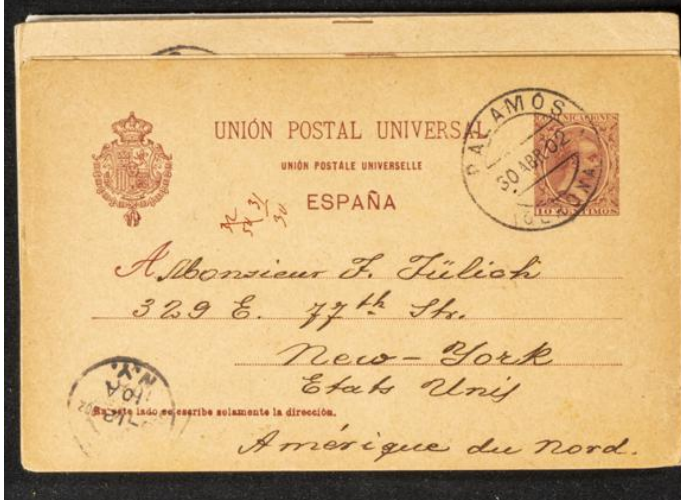 UNIÓN POSTAL UNIVERSAL
UNION POSTALE UNIVERSELLE
ESPAÑA
PALAMÓS
30 ABR 02
COMUNICACIONES
10 CENTIMOS
A Monsieur F. Fülich
329 E. 77th Str.
New-York
Etats Unis
N.Y.
10 A
En este lado se escribe solamente la dirección.
Amérique du Nord.